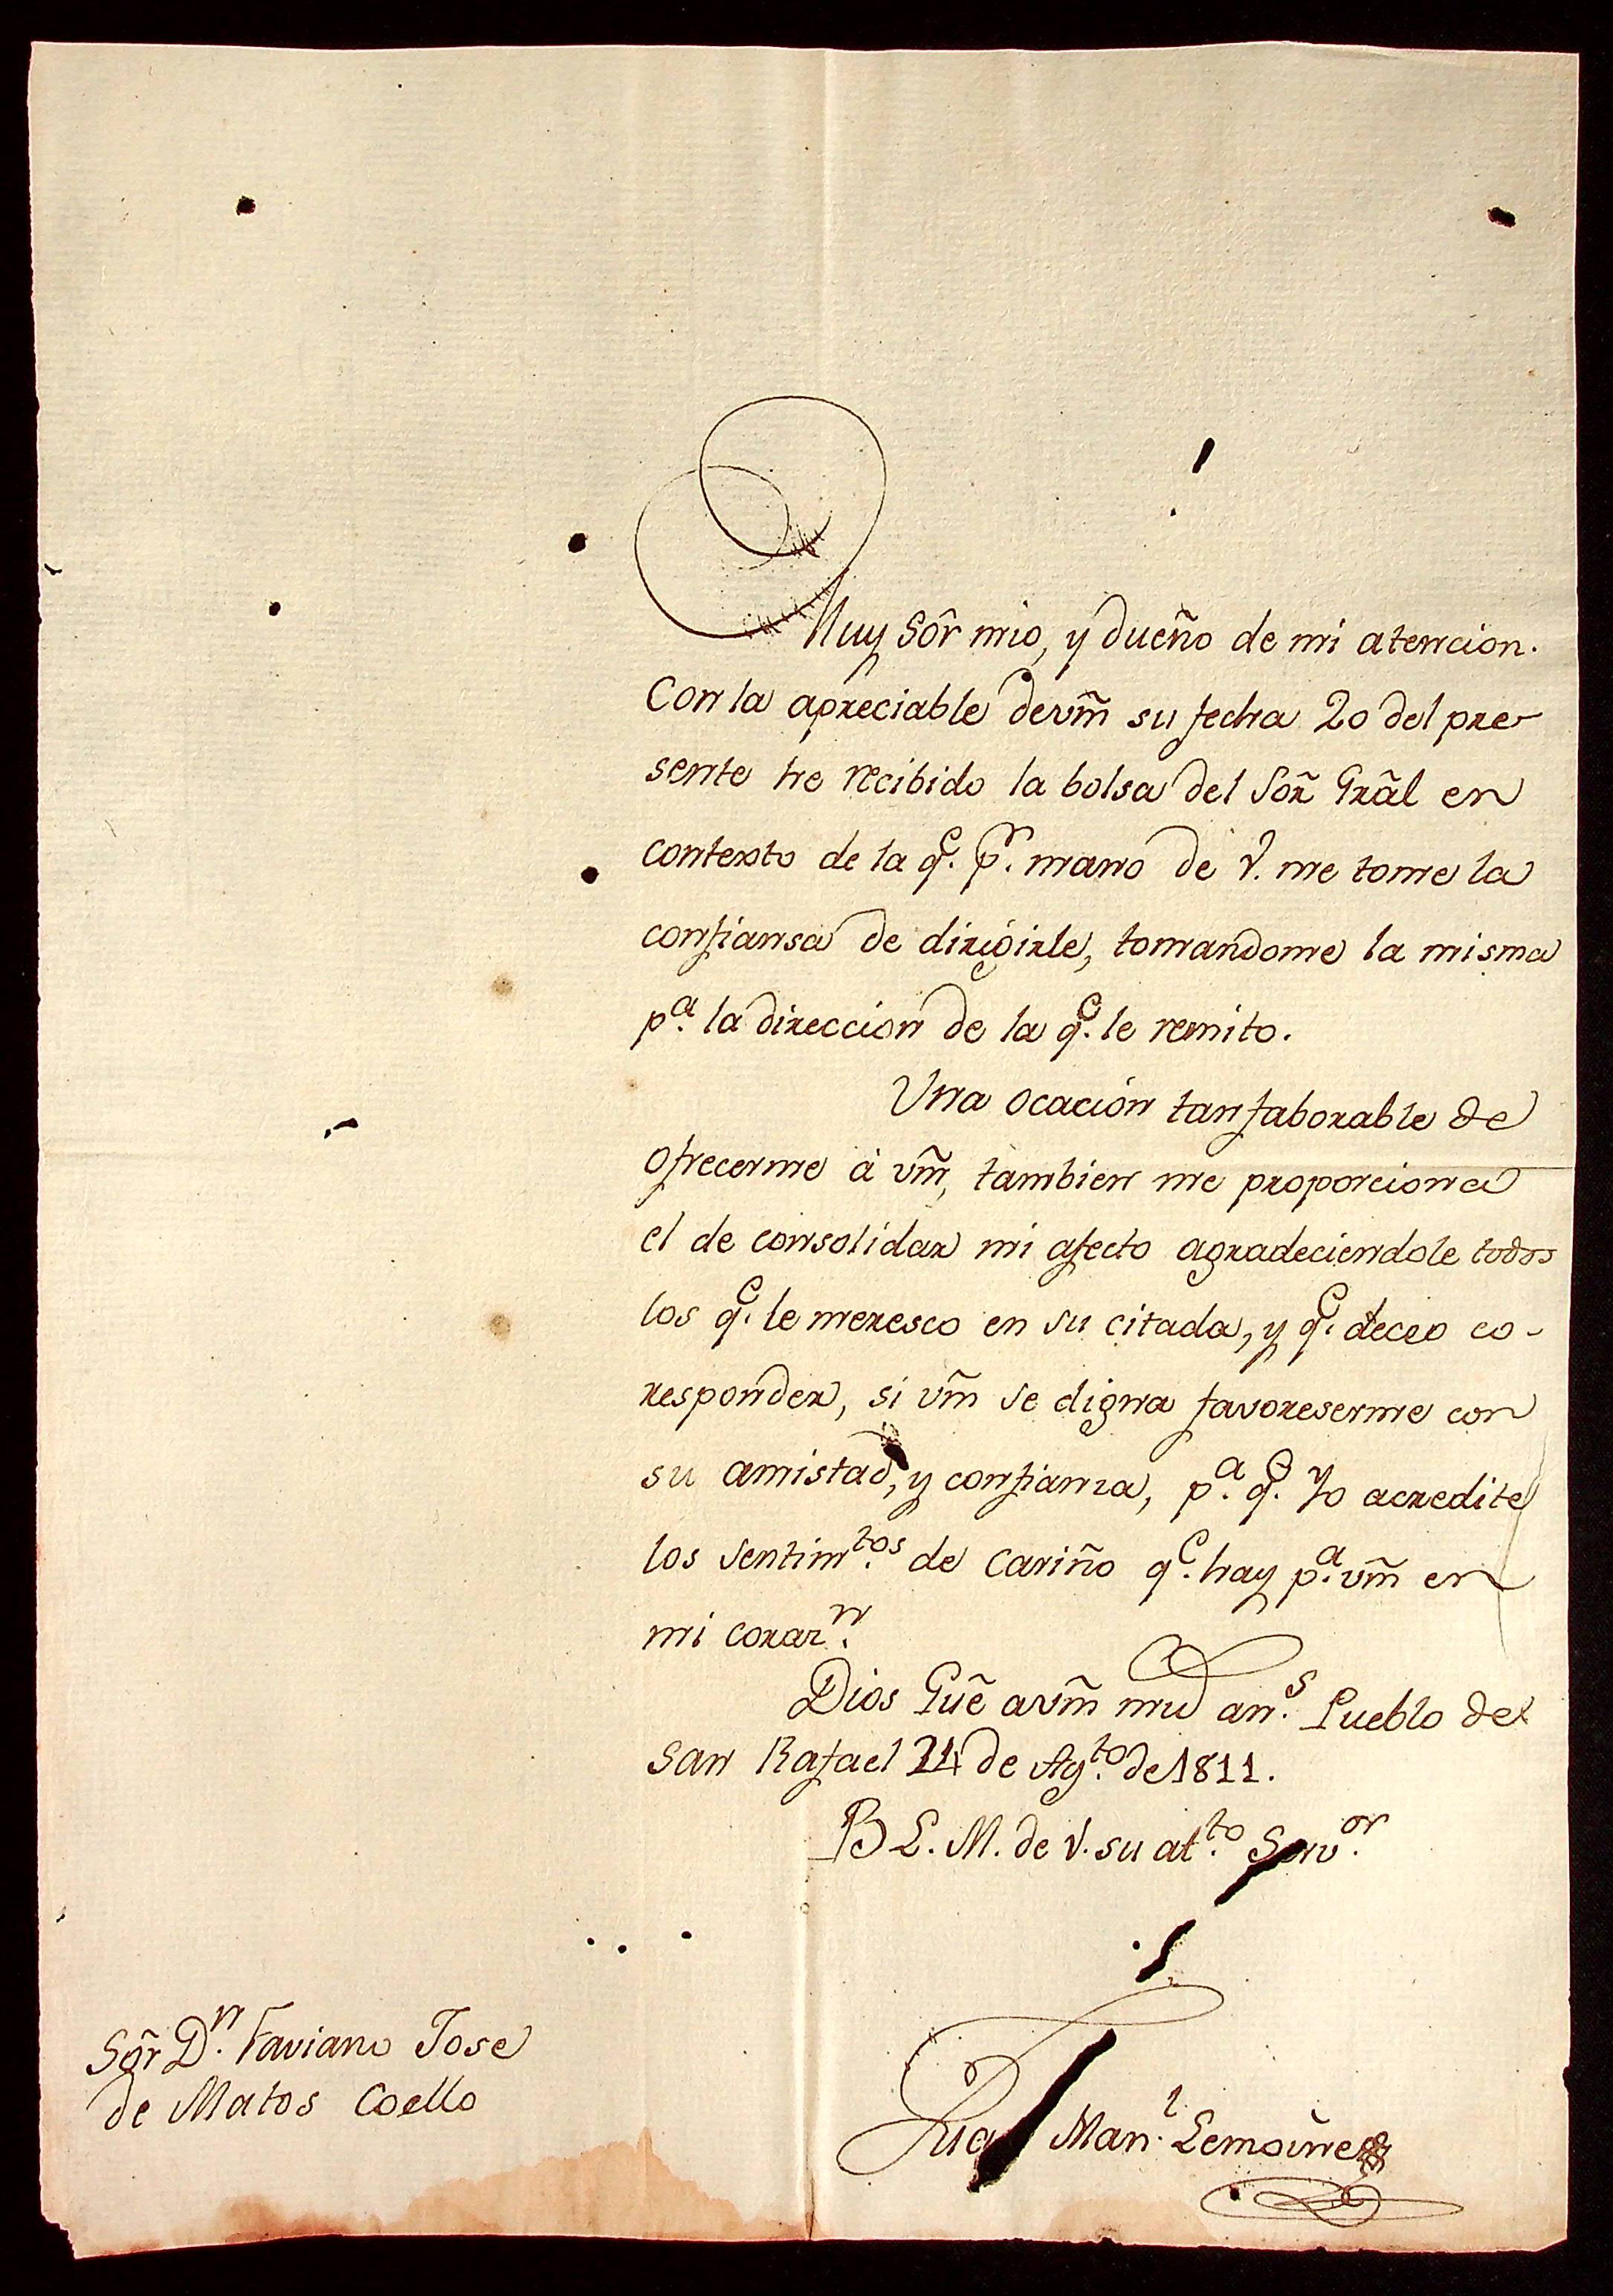 Muy Sôr mio, y dueño de mi atencion.
Con la apreciable de vm̃ su fecha 20 del pre-
sente he recibido la bolsa del Sor̃ Grãl en
contexto de la q.e p.r mano de V. me tome la
confiansa de dirigirle, tomandome la misma
p.a la direccion de la q.e le remito.
Una ocación tan faborable de
ofrecerme á vm̃, tambien me proporciona
el de consolidar mi afecto agradeciendole todos
los q.e le meresco en su citada, y q.e deceo co-
responder, si vm̃ se digna favoreserme con
su amistad, y confianza, p.a q.e Yo acredite
los sentim.tos de cariño q.e hay p.a vm̃ en
mi coraz.n
Dios Guẽ a vm̃ an.s Pueblo de
San Rafael 24 de Ag.to de 1811.
B L. M. de V. su at.to Serv.or
Sõr D.n Faviano Jose
de Matos Coello
Juan Man.l Lemoine